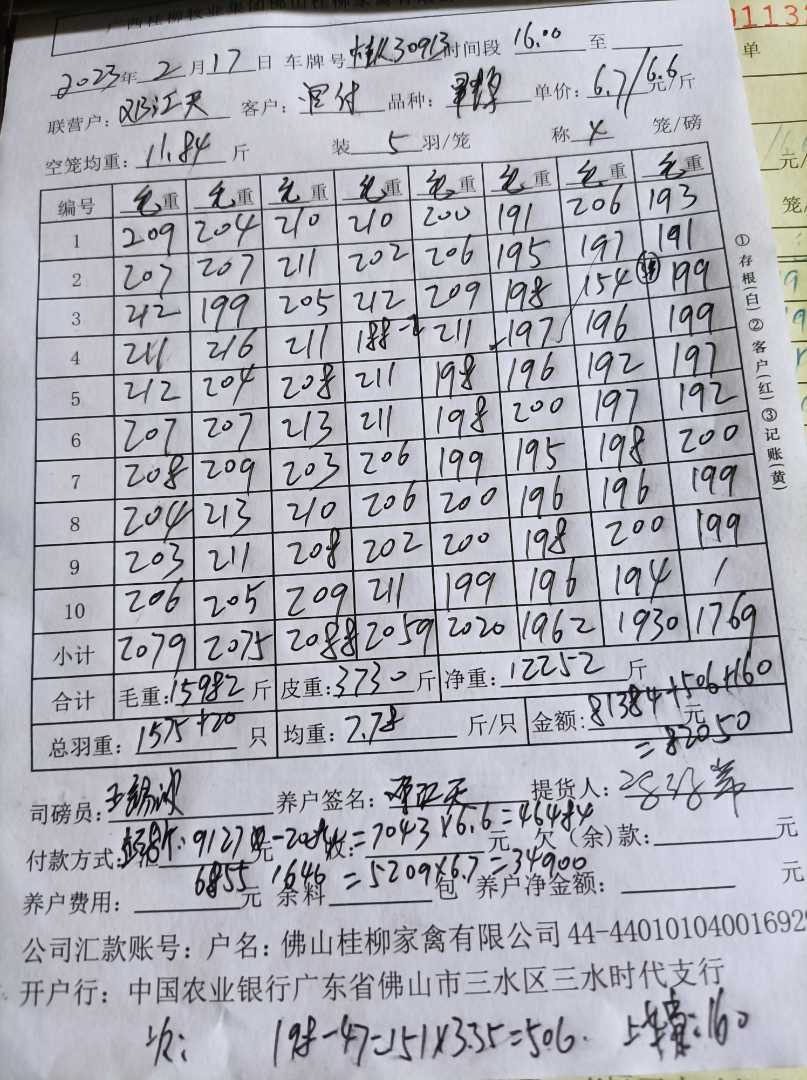 广西桂柳牧业集团佛山桂柳家禽有限
2023年2月17日 车牌号 30913 时间段 16.00 至
联营户: 江天 客户: 品种: 单价: 6.7/6.6 元/斤
空笼均重: 11.84 斤 装 5 羽/笼 称 4 笼/磅
编号 毛重 毛重 毛重 毛重 毛重 毛重 毛重 毛重
1 209 204 210 210 200 191 206 193
2 207 207 211 202 206 195 197 191
3 212 199 205 212 209 198 154 199
4 211 216 211 188-2 211 197 196 199
5 212 204 208 211 198 196 192 197
6 207 207 213 211 198 200 197 192
7 208 209 203 206 199 195 198 200
8 204 213 210 206 200 196 196 199
9 203 211 208 202 200 198 200 199
10 206 205 209 211 199 196 194 /
小计 2079 2075 2088 2059 2020 1962 1930 1769
合计 毛重: 15982 斤 皮重: 3730 斤 净重: 12252 斤
总羽重: 1575+20 只 均重: 7.78 斤/只 金额: 81384+506+160 元
=82050
司磅员: 养户签名: 提货人:
付款方式: 9127 元 收: =7043×6.6=46484 元 欠(余)款: 元
养户费用: 6855 元 1646 余料 =5209×6.7=34900 包 养户净金额: 元
公司汇款账号: 户名: 佛山桂柳家禽有限公司 44-440101040016929
开户行: 中国农业银行广东省佛山市三水区三水时代支行
次: 198-47=151×3.35=506. 160
①存根(白)②客户(红)③记账(黄)
01133
单
元/
笼/